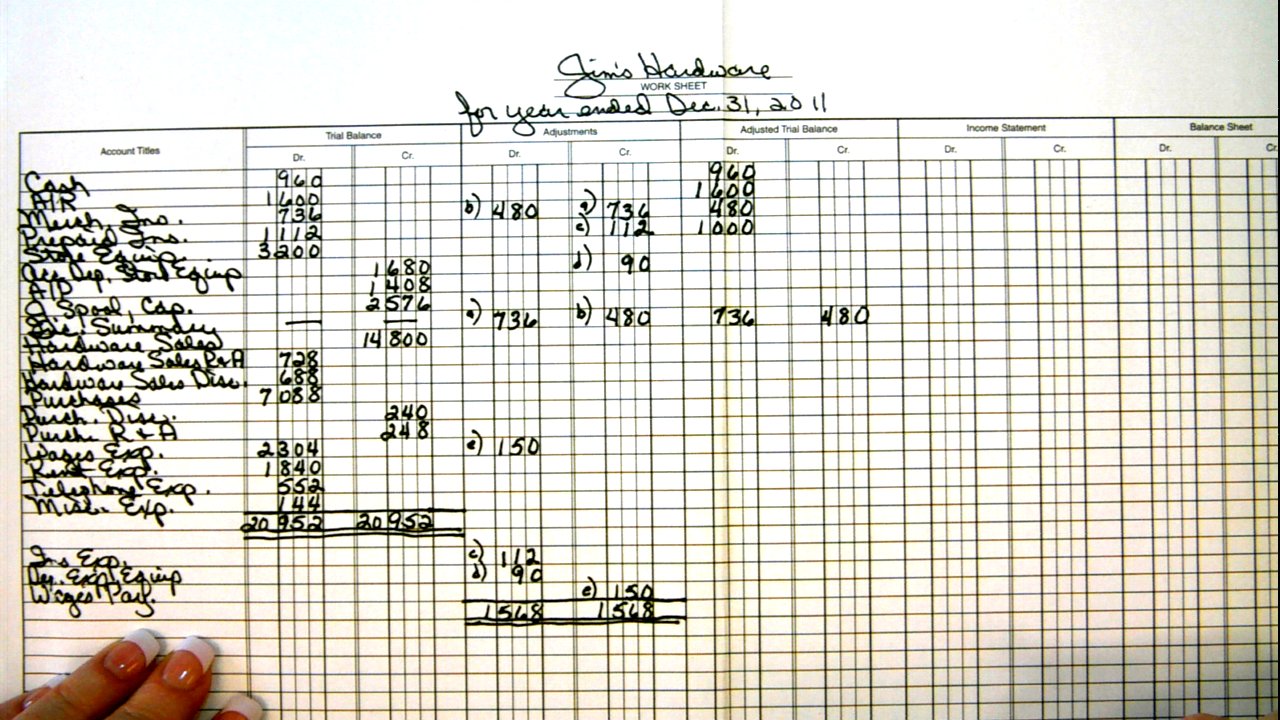 Jim's Hardware
WORK SHEET
for year ended Dec. 31, 2011
Account Titles Trial Balance Adjustments Adjusted Trial Balance Income Statement Balance Sheet
Dr. Cr. Dr. Cr. Dr. Cr. Dr. Cr. Dr. Cr.
Cash 960 960
A/R 1600 1600
Merch. Ins. 736 b) 480 a) 736 480
Prepaid Ins. 1112 c) 112 1000
Store Equip. 3200
Acc. Dep. Store Equip 1680 d) 90
A/P 1408
J. Spool, Cap. 2576
Inc. Summary — — a) 736 b) 480 736 480
Hardware Sales 14800
Hardware Sales R+A 728
Hardware Sales Disc. 688
Purchases 7088
Purch. Disc. 240
Purch. R+A 248
Wages Exp. 2304 e) 150
Rent Exp. 1840
Telephone Exp. 552
Misc. Exp. 144
20952 20952
Ins Exp. c) 112
Dep. Exp. Equip d) 90
Wages Pay. e) 150
1568 1568